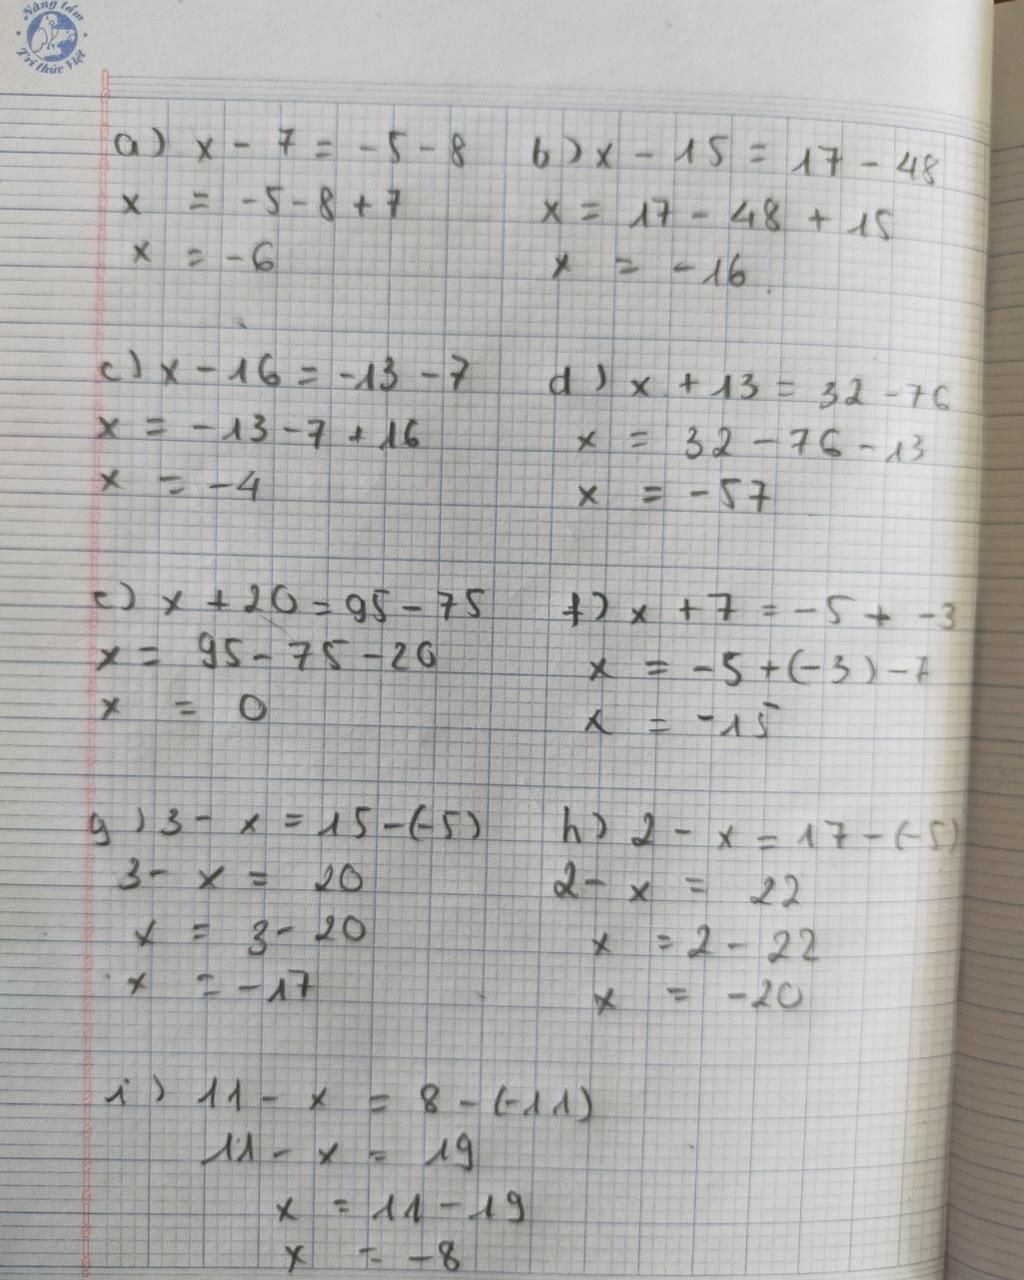 Nâng tầm
Trí thức Việt
a) x - 7 = -5 - 8
x = -5 - 8 + 7
x = -6
b) x - 15 = 17 - 48
x = 17 - 48 + 15
x = -16.
c) x - 16 = -13 - 7
x = -13 - 7 + 16
x = -4
d) x + 13 = 32 - 76
x = 32 - 76 - 13
x = -57
e) x + 20 = 95 - 75
x = 95 - 75 - 20
x = 0
f) x + 7 = -5 + -3
x = -5 + (-3) - 7
x = -15
g) 3 - x = 15 - (-5)
3 - x = 20
x = 3 - 20
x = -17
h) 2 - x = 17 - (-5)
2 - x = 22
x = 2 - 22
x = -20
i) 11 - x = 8 - (-11)
11 - x = 19
x = 11 - 19
x = -8